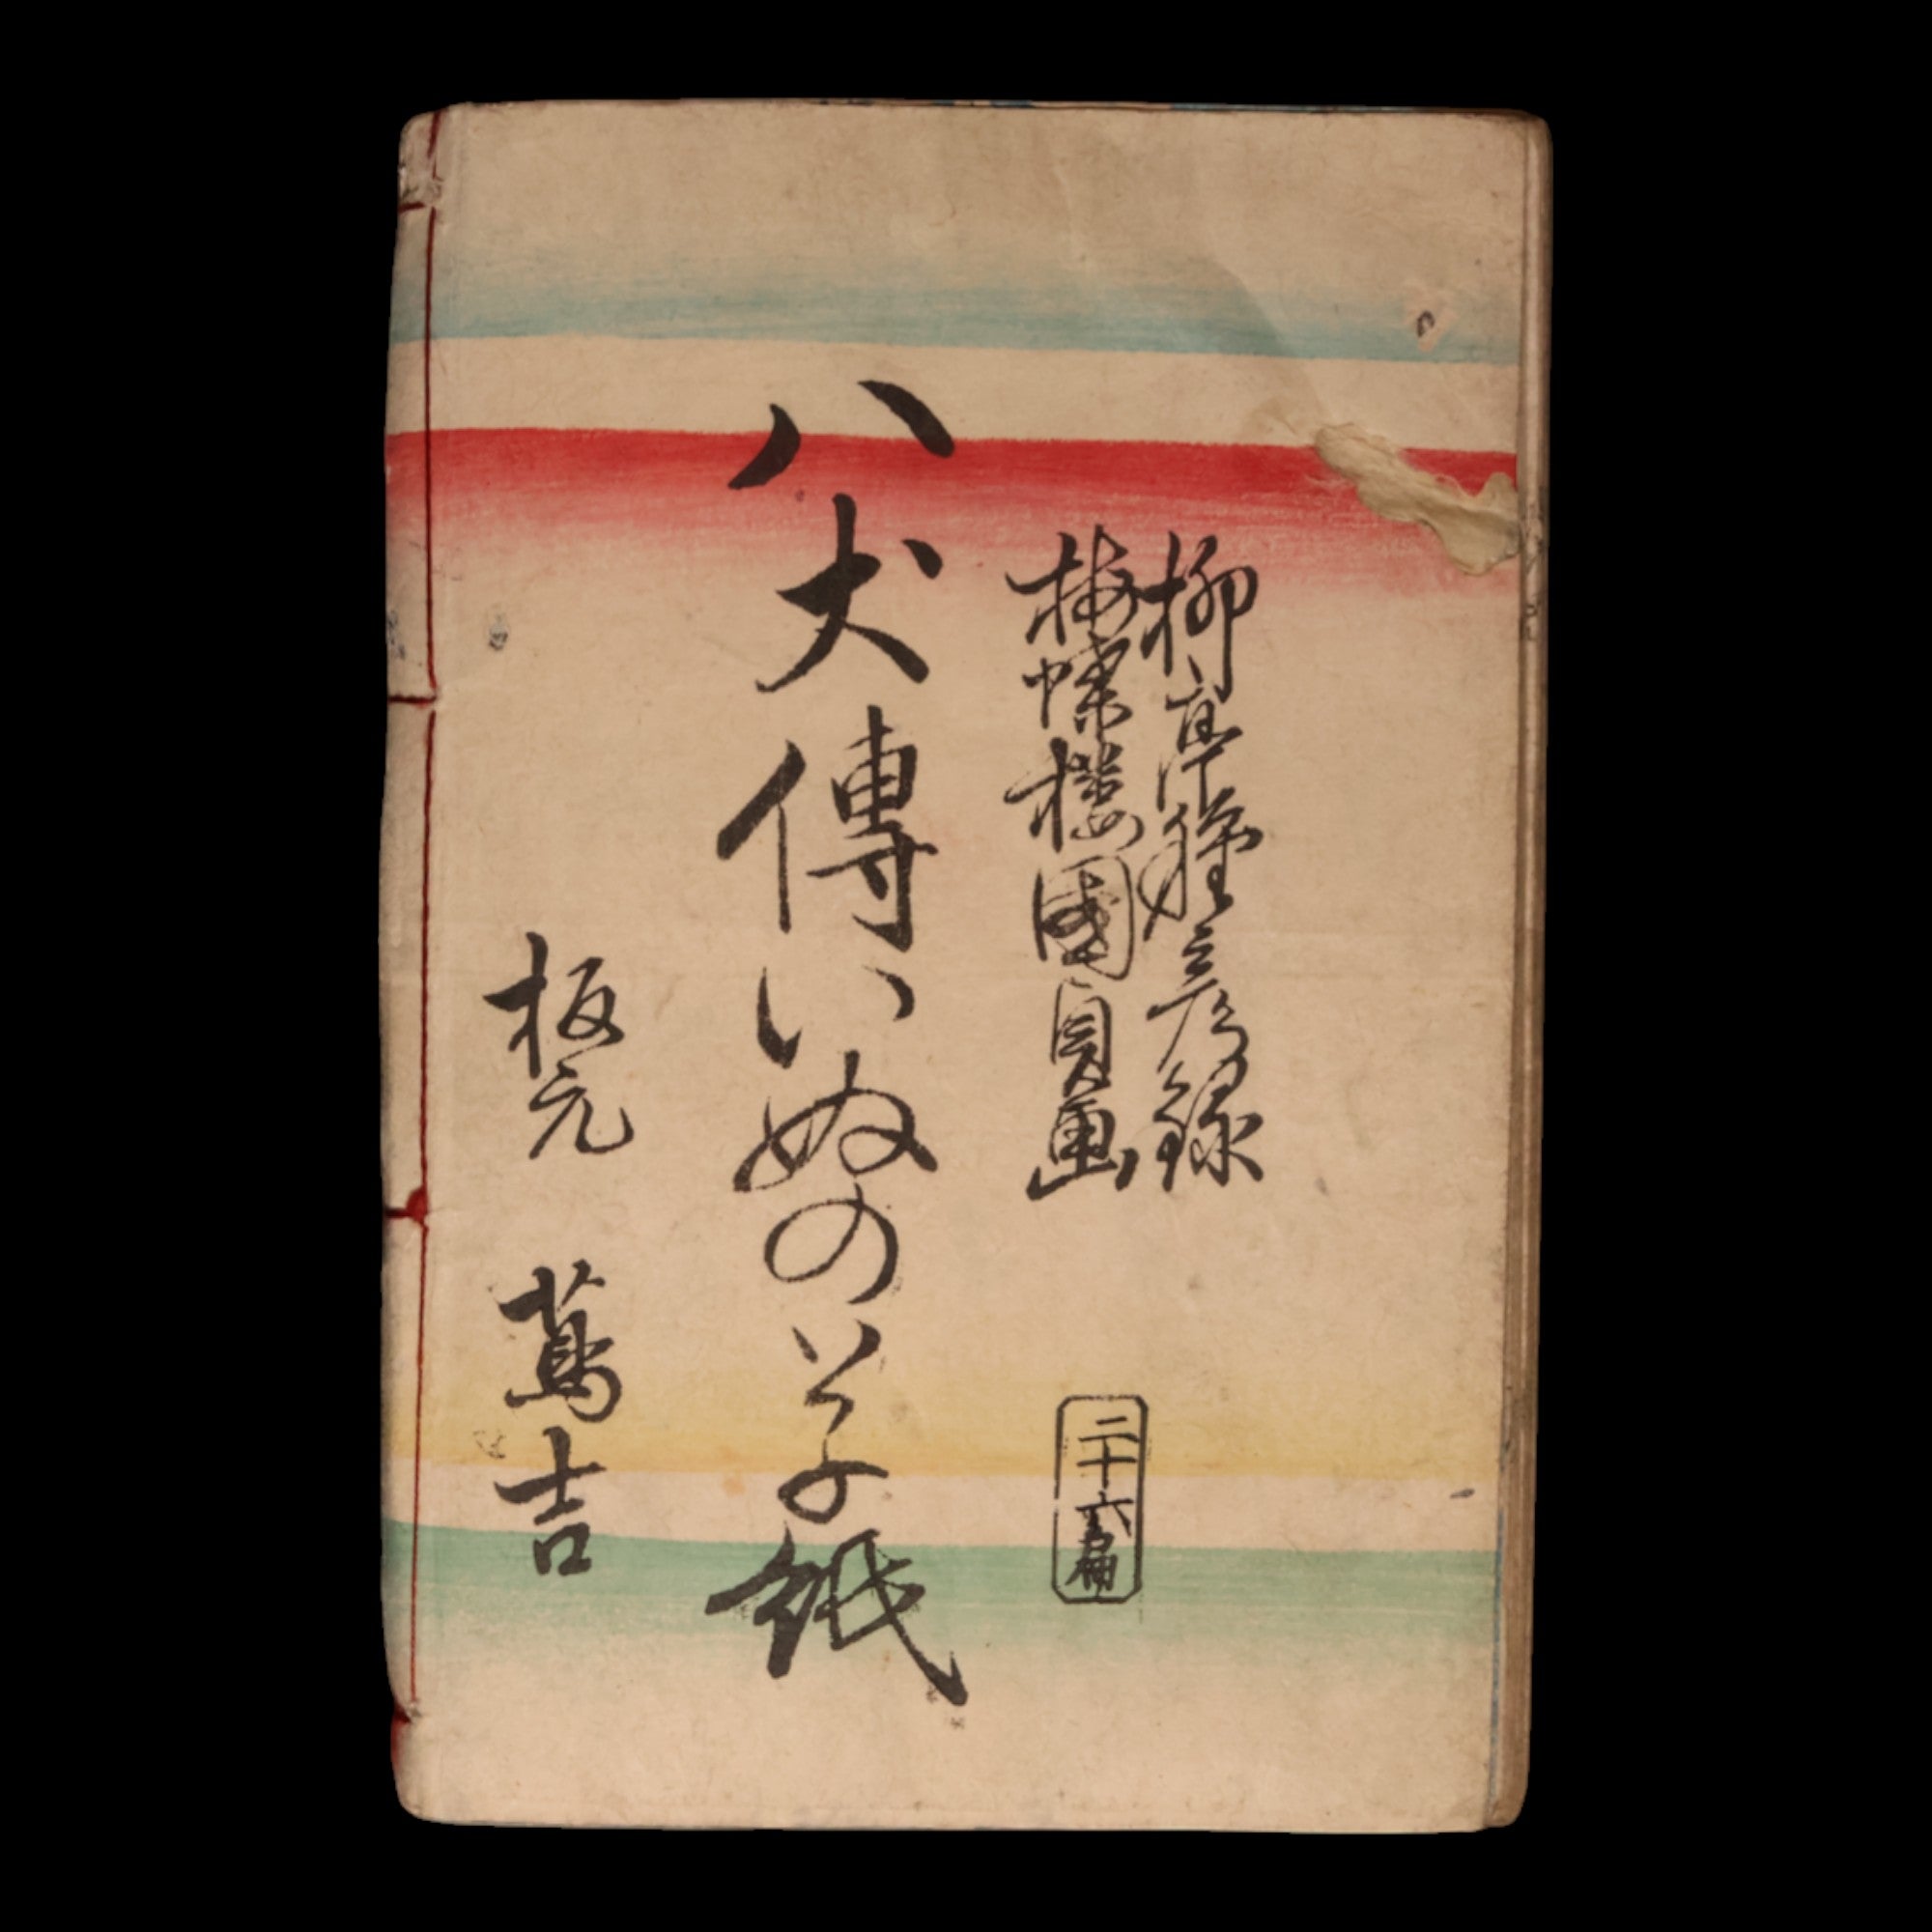 柳亭種彦録
梅蝶楼國貞画
二十六編
八犬傳いぬのさうし紙
板元 蔦吉